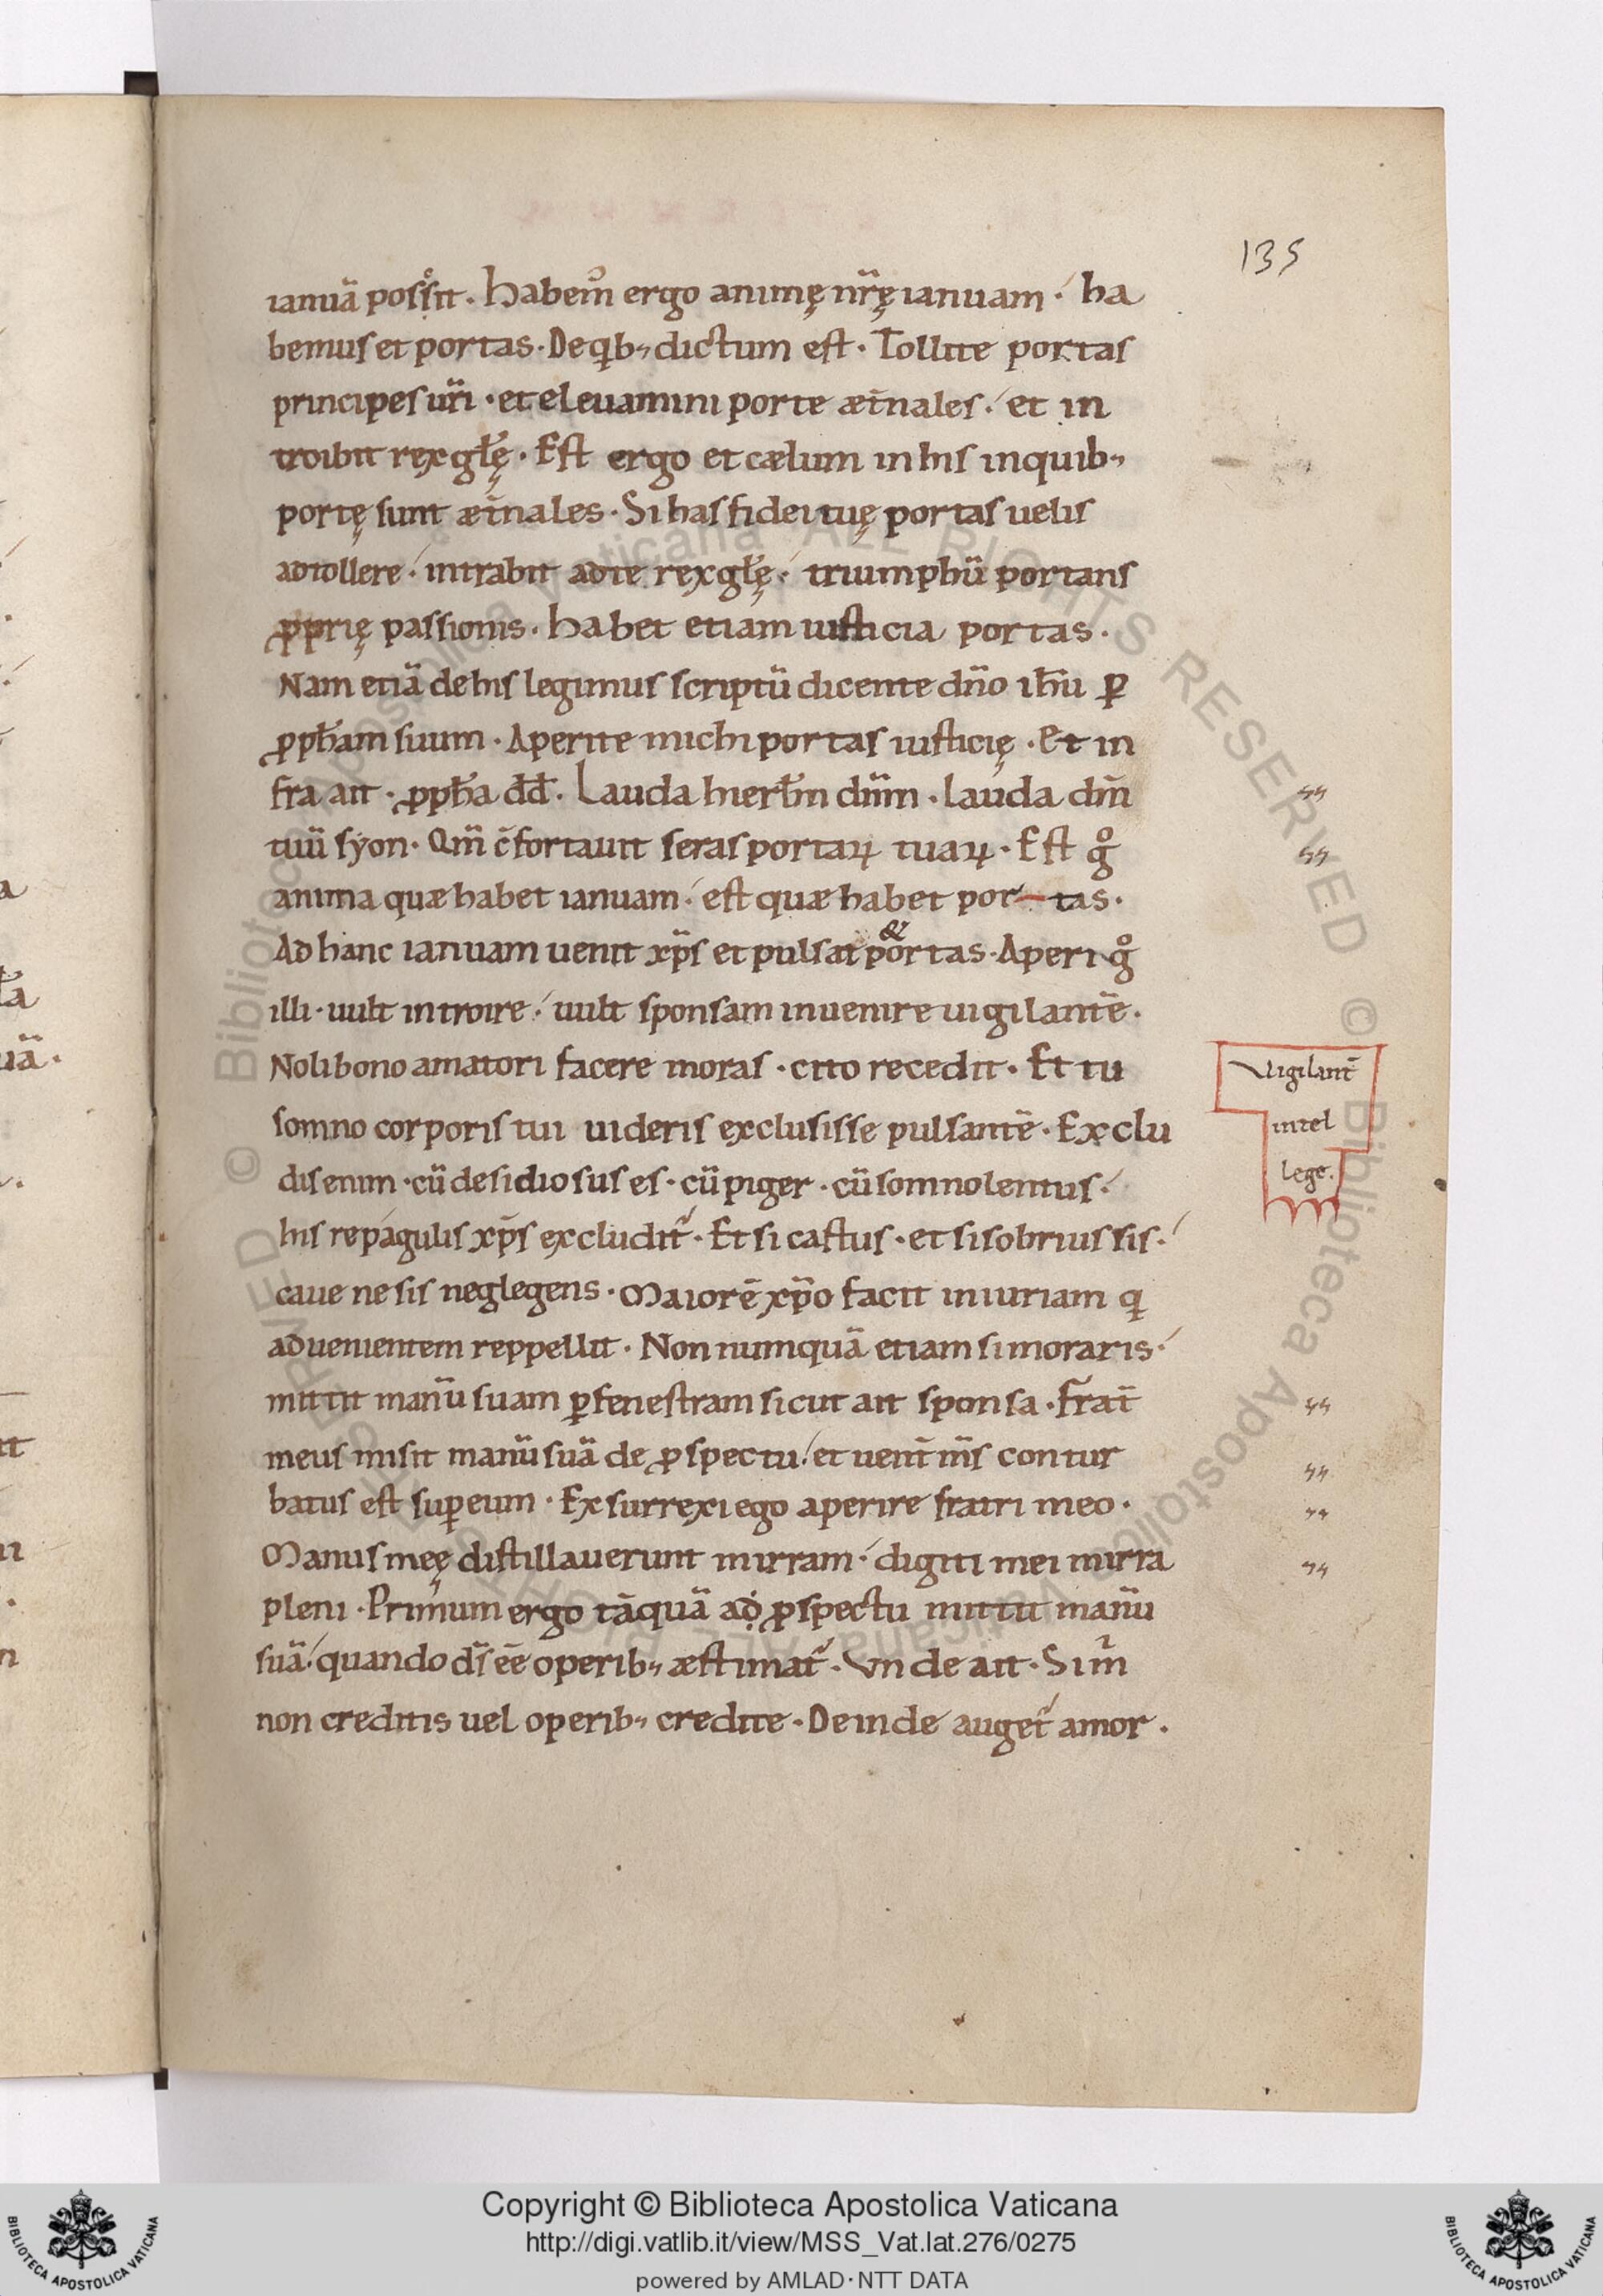 135
ianuā posſit. Habem᷒ ergo animę nr̄ę ianuam· ha
bemus et portas. De qⁱb; dictum est. Tollite portas
principes ur̄i. et eleuamini porte æt̄nales. et in
troibit rex gl̄ę. Est ergo et cælum in his in quib;
portę sunt æt̄nales. Si has fidei tuę portas uelis
adtollere. intrabit ad te rex gl̄ę. triumphū portans
ꝓprię passionis. Habet etiam iusticia portas.
Nam etiā de his legimus scriptū dicente dn̄o ih̄u ꝑ
ꝓph̄am suum. Aperite michi portas iusticię. Et in
fra ait. ꝓph̄a dd̄. Lauda hierl̄m dn̄m. lauda dm̄
tuū syon. Qm̄ c̄fortauit seras portaꝝ tuaꝝ. Est gͦ
anima quæ habet ianuam. est quæ habet por-tas.
Ad hanc ianuam uenit xp̄s et pulsat portas. Aperi gͦ
&
illi. uult introire. uult sponsam inuenire uigilantē.
Noli bono amatori facere moras. cito recedit. Et tu
somno corporis tui uideris exclusisse pulsantē. Exclu
dis enim. cū desidiosus es. cū piger. cū somnolentus.
his repagulis xp̄s excludit᷑. Et si castus. et si sobrius sis.
caue ne sis neglegens. Maiorē xp̄o facit iniuriam qⁱ
aduenientem reppellit. Non numquā etiam si moraris.
mittit manū suam ꝑ fenestram sicut ait sponsa. Frat̄
meus misit manū suā de ꝓspectu. et uent̄ m̄s contur
batus est suꝑ eum. Exsurrexi ego aperire fratri meo.
Manus meę distillauerunt mirram. digiti mei mirra
pleni. Primum ergo tāquā ad ꝓspectu mittit manū
suā. quando ds̄ ēē operib; æstimat᷑. Vnde ait. Si mⁱ
non creditis uel operib; credite. Deinde auget᷑ amor.
Vigilant̄
intel
lege.
Copyright © Biblioteca Apostolica Vaticana
http://digi.vatlib.it/view/MSS_Vat.lat.276/0275
powered by AMLAD·NTT DATA
BIBLIOTECA APOSTOLICA VATICANA
BIBLIOTECA APOSTOLICA VATICANA
© Biblioteca Apostolica Vaticana ALL RIGHTS RESERVED
© Biblioteca Apostolica Vaticana ALL RIGHTS RESERVED